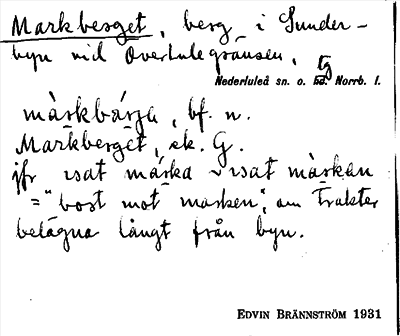 Markberget, berg i Sunder-
byn vid Överlulegränsen,
tg
Nederluleå sn. o. hd. Norrb. l.
màrkbárja, bf. n.
Markberget, ek. G.
jfr
márka
màrkan
= "bort mot marken", om trakter
belägna långt från byn.
EDVIN BRÄNNSTRÖM 1931